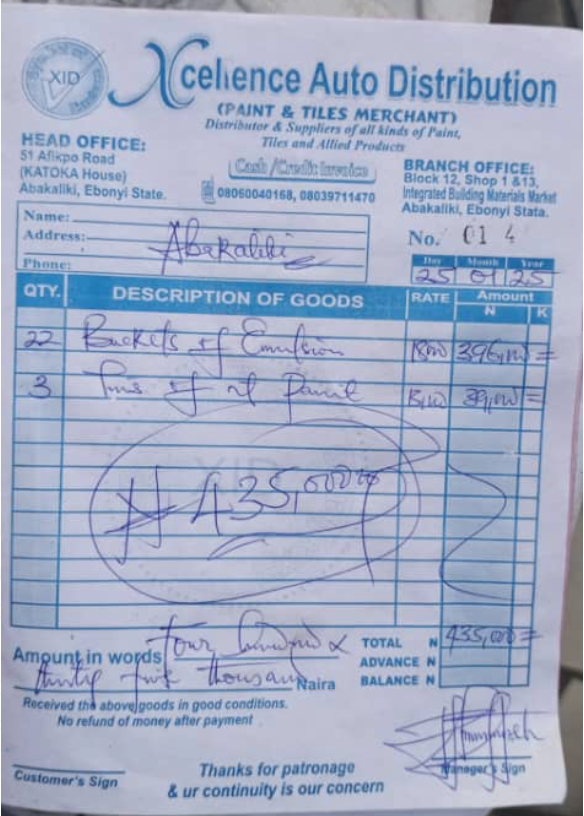 XID
Xcellence Auto Distribution
(PAINT & TILES MERCHANT)
Distributor & Suppliers of all kinds of Paint,
Tiles and Allied Products
HEAD OFFICE:
51 Afikpo Road
(KATOKA House)
Abakaliki, Ebonyi State.
Cash/Credit Invoice
08060040168, 08039711470
BRANCH OFFICE:
Block 12, Shop 1 &13,
Integrated Building Materials Market
Abakaliki, Ebonyi Stata.
Name:
Address: Abakaliki
Phone:
No. 014
Day Month Year
25 01 25
QTY. DESCRIPTION OF GOODS RATE Amount
N K
22 Buckets of Emulsion 18,000 396,000 =
3 Tins of oil Paint 13,000 39,000 =
₦ 435,000
Amount in words Four hundred &
thirty five thousand Naira
TOTAL N 435,000 =
ADVANCE N
BALANCE N
Received the above goods in good conditions.
No refund of money after payment
Customer's Sign
Thanks for patronage
& ur continuity is our concern
Manager's Sign